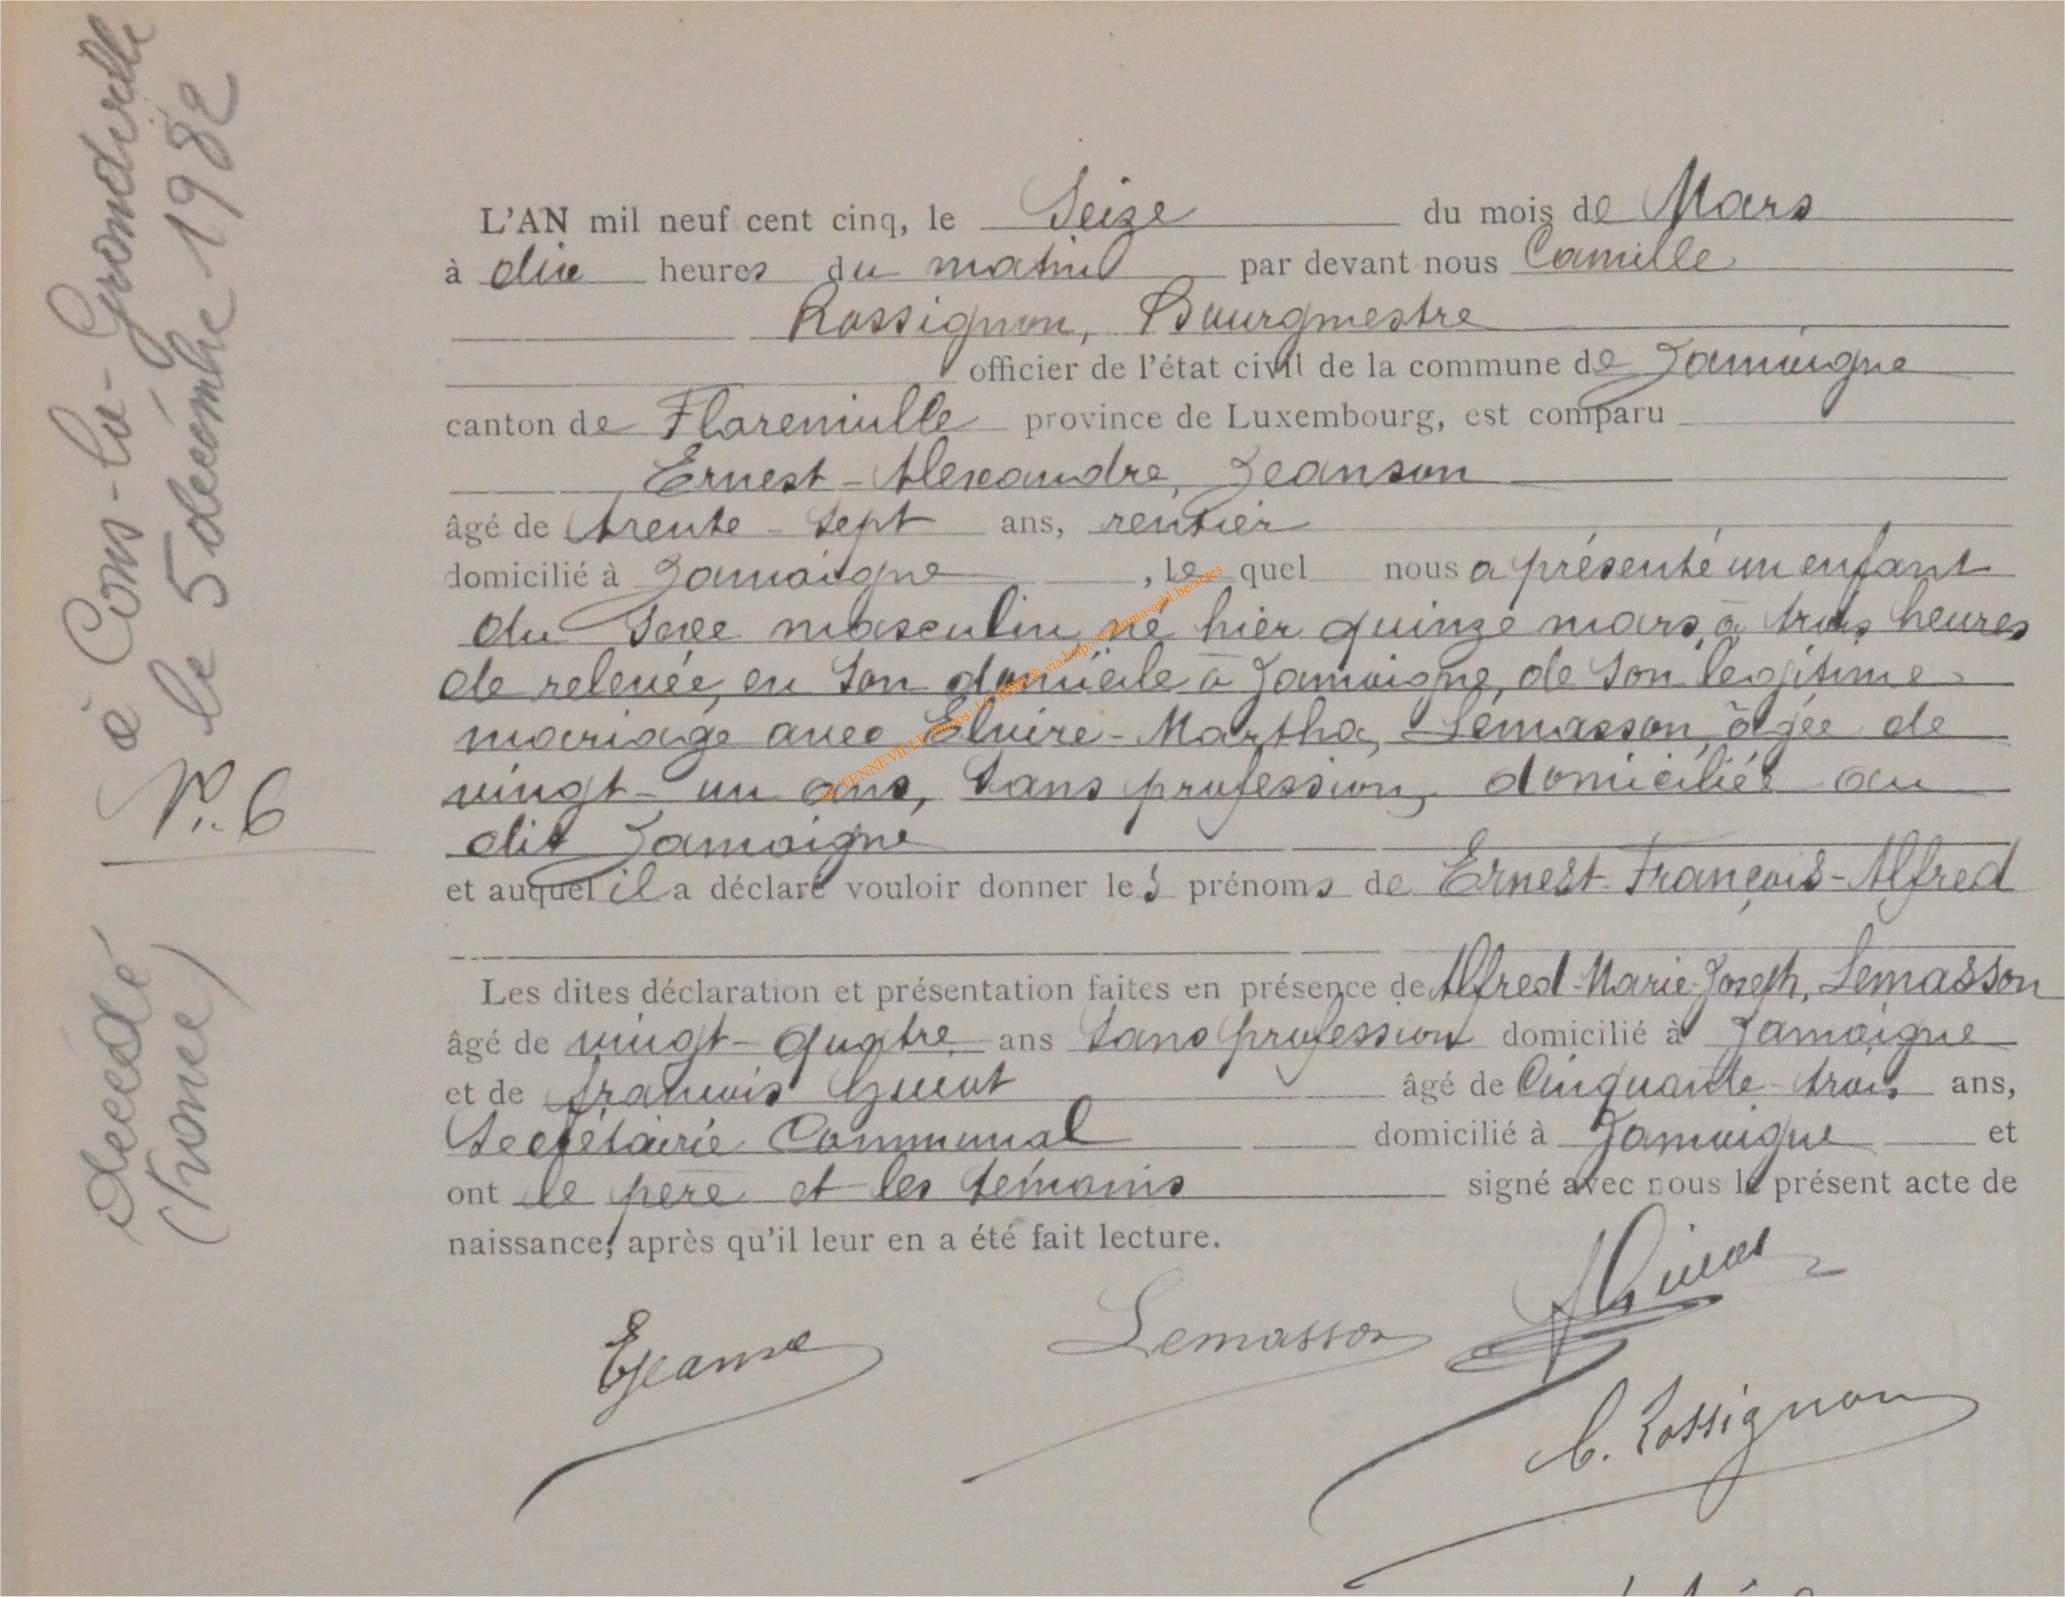 décédé à Cons-la-Grandville
(France) le 5 décembre 1982
N° 6
L'AN mil neuf cent cinq, le Seize du mois de Mars
à dix heures du matin par devant nous Camille
Rossignon, Bourgmestre
officier de l'état civil de la commune de Jamoigne
canton de Florenville province de Luxembourg, est comparu
Ernest-Alexandre, Jeanson
âgé de trente-sept ans, rentier
domicilié à Jamoigne, lequel nous a présenté un enfant
du sexe masculin, né hier quinze mars, à trois heures
de relevée, en son domicile à Jamoigne, de son légitime
mariage avec Elvire-Martha, Lemasson, âgée de
vingt-un ans, sans profession, domiciliée au
dit Jamoigne
et auquel il a déclaré vouloir donner les prénoms de Ernest-François-Alfred
Les dites déclaration et présentation faites en présence de Alfred-Marie-Joseph, Lemasson
âgé de vingt-quatre ans sans profession domicilié à Jamoigne
et de françois âgé de Cinquante-trois ans,
Secrétaire Communal domicilié à Jamoigne et
ont le père et les témoins signé avec nous le présent acte de
naissance, après qu'il leur en a été fait lecture.
Lemasson
C. Rossignon